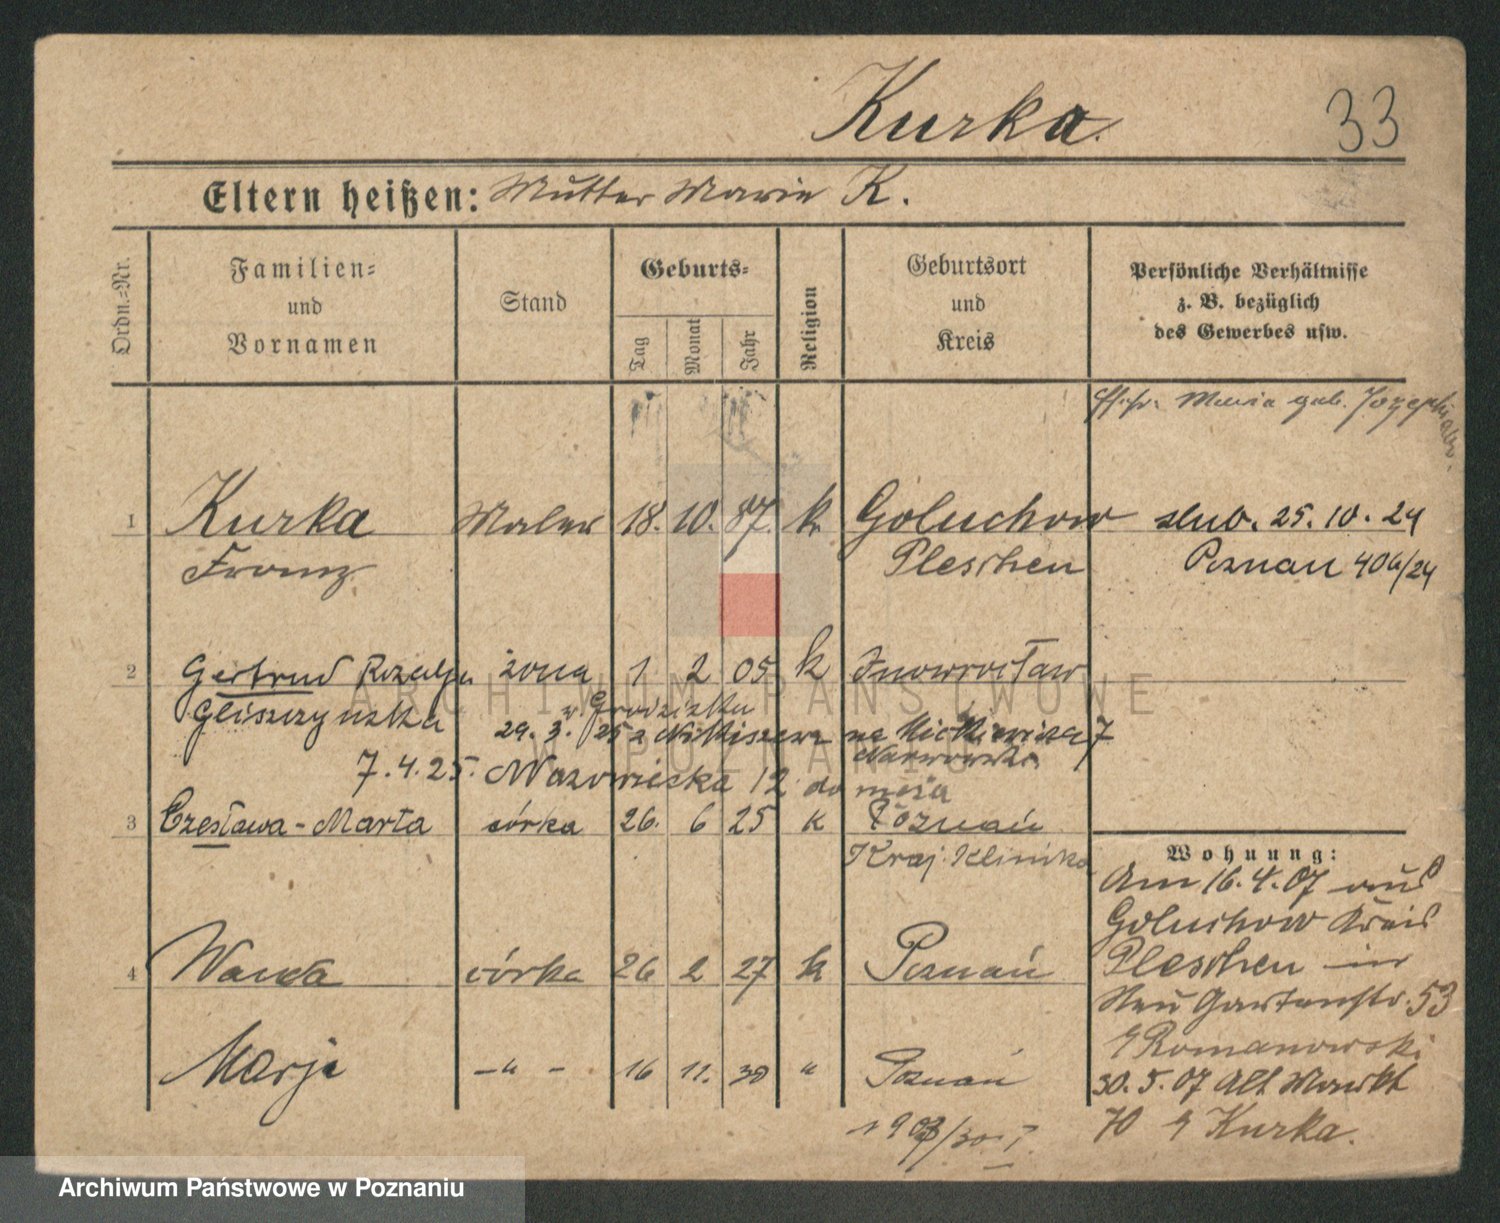 Kurka.
33
Eltern heißen: Mutter Marie K.
Ordn.-Nr.
Familien- und Vornamen
Stand
Geburts-
Tag
Monat
Jahr
Religion
Geburtsort und Kreis
Persönliche Verhältnisse
z. B. bezüglich
des Gewerbes usw.
Maria geb.
1 Kurka Maler 18. 10. 87. k Goluchow slub. 25. 10. 24
Franz Pleschen Poznań 406/24
2 Gertrud Rozalja żona 1 2 05 k Inowrocław
Gliszczyńska
w Grodzisku
29. 3. 25 z na Mickiewicza 7
7. 4. 25. Mazowiecka 12 do męża
3 Czesława - Marta córka 26. 6 25 k Poznań
Kraj. Klinika
4 Wanda córka 26 2 27 k Poznań
Marja -"- 16 11. 30 " Poznań
Wohnung:
Am 16. 4. 07 aus
Goluchow Kreis
Pleschen in
Neu Gartenstr. 53
Romanowski
30. 5. 07 Alt Markt
70 Kurka.
ARCHIWUM PAŃSTWOWE
W POZNANIU
Archiwum Państwowe w Poznaniu